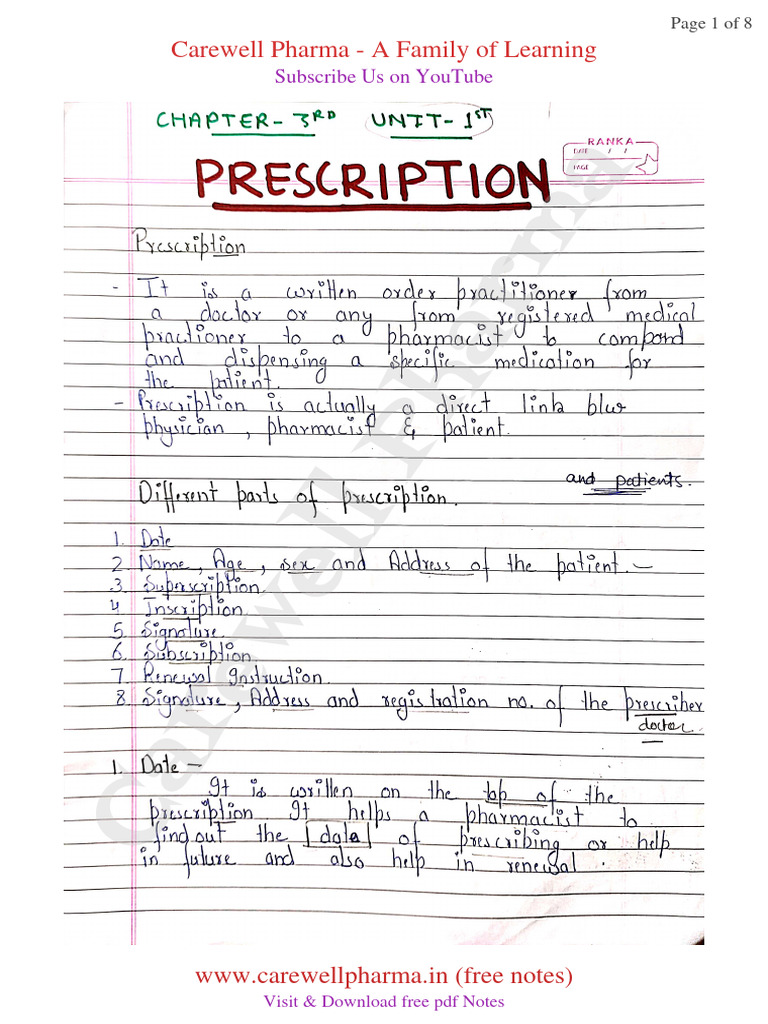 Page 1 of 8
Carewell Pharma - A Family of Learning
Subscribe Us on YouTube
CHAPTER- 3RD UNIT- 1ST
RANKA
DATE / /
PAGE
PRESCRIPTION
Prescription
- It is a written order practitioner from
a doctor or any from registered medical
practioner to a pharmacist to compond
and dispensing a specific medication for
the patient.
- Prescription is actually a direct link b/w
physician, pharmacist & patient.
and patients.
Different parts of prescription.
1. Date
2. Name, Age, sex and Address of the patient. -
3. Superscription
4. Inscription
5. Signature.
6. Subscription
7. Renewal Instruction.
8. Signature, Address and registration no. of the prescriber
doctor.
1. Date -
It is written on the top of the
prescription It helps a pharmacist to
find out the date of prescribing or help
in future and also help in renewal.
Carewell Pharma
www.carewellpharma.in (free notes)
Visit & Download free pdf Notes